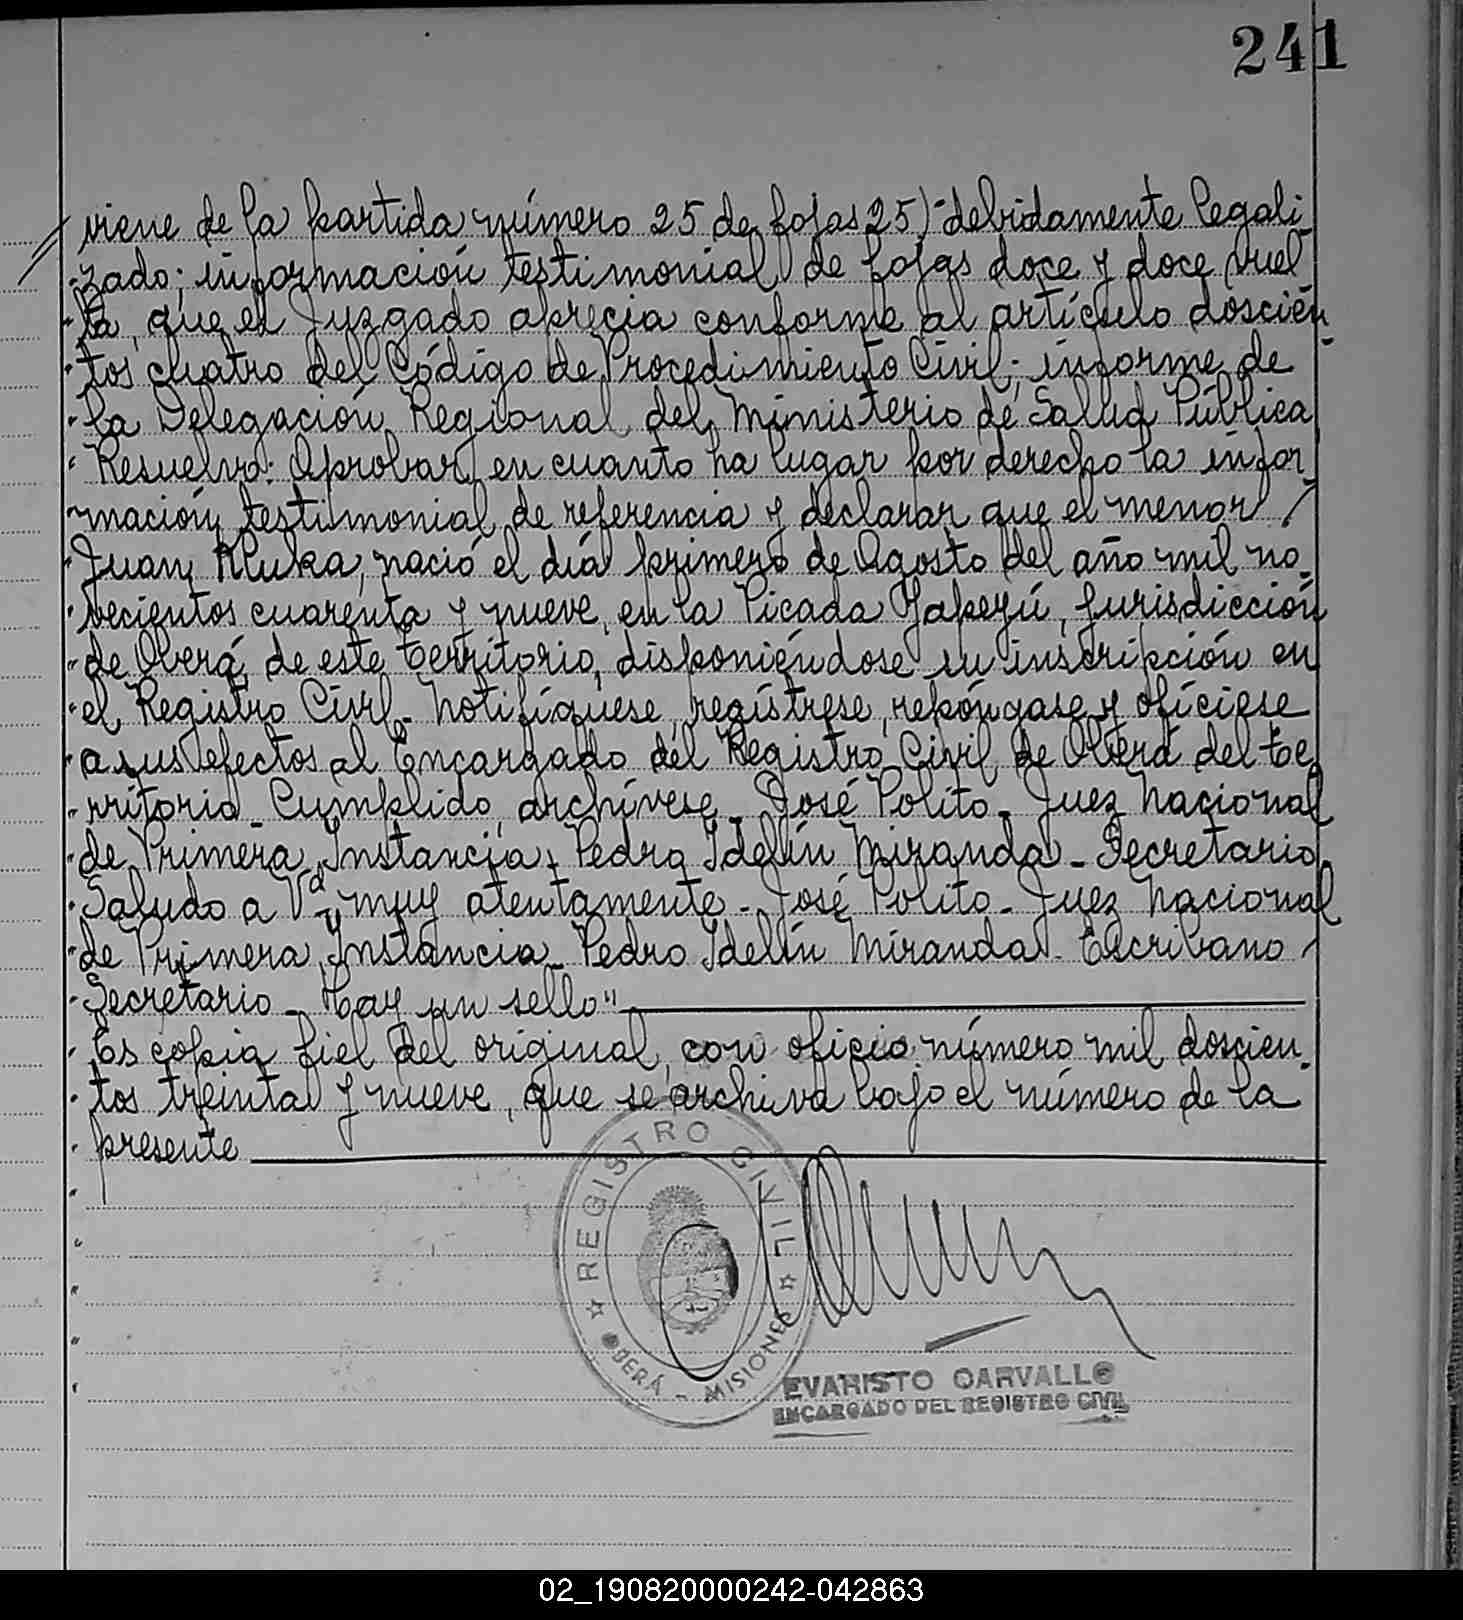 241
viene de la partida número 25 de fojas 25)-debidamente legali-
zado; información testimonial de fojas doce y doce vuel
ta, que el Juzgado aprecia conforme al artículo doscien
tos cuatro del Código de Procedimiento Civil; informe de
la Delegación Regional del Ministerio de Salud Pública
Resuelvo: Aprobar en cuanto ha lugar por derecho la infor
mación testimonial de referencia y declarar que el menor /
Juan Kluka, nació el día primero de Agosto del año mil no-
vecientos cuarenta y nueve, en la Picada Yapeyú, jurisdicción
de Oberá, de este territorio, disponiéndose su inscripción en
el Registro Civil - Notifíquese, regístrese, repóngase y ofíciese
a sus efectos al Encargado del Registro Civil de Oberá del te
rritorio - Cumplido, archívese - José Polito - Juez Nacional
de Primera Instancia - Pedro Idelín Miranda - Secretario
Saludo a Vd muy atentamente - José Polito - Juez Nacional
de Primera Instancia - Pedro Idelín Miranda - Escribano /
Secretario - Hay un sello"
Es copia fiel del original, con oficio número mil doscien-
tos treinta y nueve, que se archiva bajo el número de la
presente
REGISTRO CIVIL
OBERÁ - MISIONES
EVARISTO CARVALLO
ENCARGADO DEL REGISTRO CIVIL
02_190820000242-042863